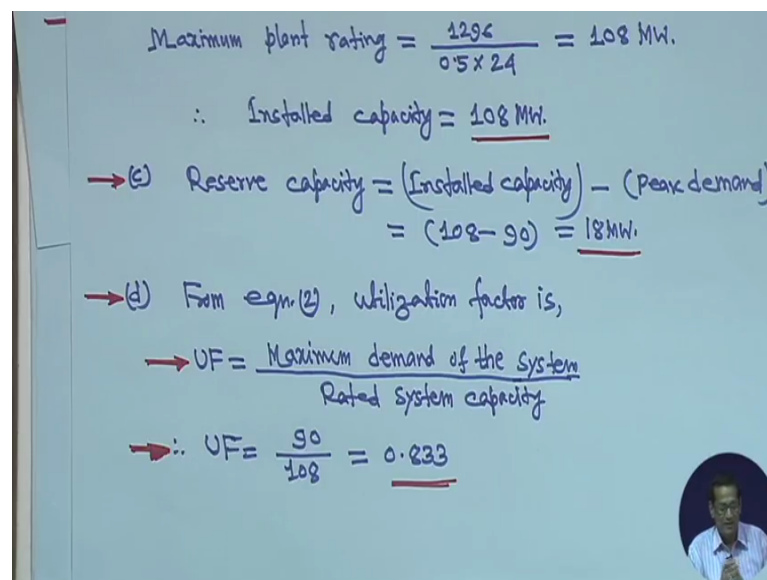 Maximum plant rating = 1296 / 0.5 × 24 = 108 MW.
∴ Installed capacity = 108 MW.
→ (c) Reserve capacity = (Installed capacity) − (Peak demand)
= (108 − 90) = 18 MW.
→ (d) From eqn.(2), utilization factor is,
→ UF = Maximum demand of the system / Rated system capacity
→ ∴ UF = 90 / 108 = 0.833